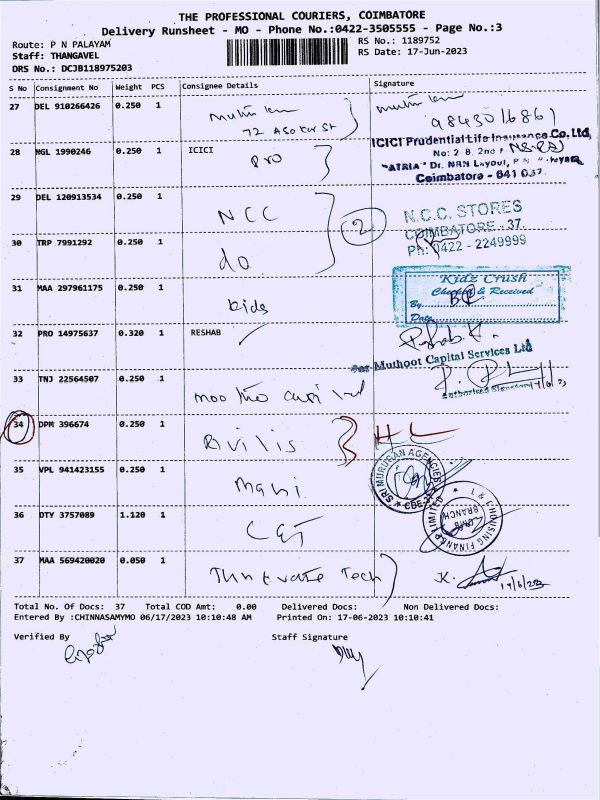 THE PROFESSIONAL COURIERS, COIMBATORE
Delivery Runsheet - MO - Phone No.:0422-3505555 - Page No.:3
Route: P N PALAYAM
RS No.: 1189752
Staff: THANGAVEL
RS Date: 17-Jun-2023
DRS No.: DCJB118975203
S No Consignment No Weight PCS Consignee Details Signature
27 DEL 910266426 0.250 1
72
28 NGL 1990246 0.250 1 ICICI pro
ICICI Prudential Life Insurance Co. Ltd,
"ATRIA" Dr. NRN Layout,
Coimbatore - 641 037.
29 DEL 120913534 0.250 1 NCC
2
N.C.C. STORES
COIMBATORE - 37.
PH: 0422 - 2249999
30 TRP 7991292 0.250 1 do
31 MAA 297961175 0.250 1 kids
Kidz Crush
Checked & Received
By
Date
32 PRO 14975637 0.320 1 RESHAB
For Muthoot Capital Services Ltd
Authorised Signatory
33 TNJ 22564507 0.250 1
34 DPM 396674 0.250 1
SRI MURUGAN AGENCIES
35 VPL 941423155 0.250 1 Mani
36 DTY 3757089 1.120 1
L & T HOUSING FINANCE LIMITED
BRANCH
37 MAA 569420020 0.050 1 Tech
Total No. Of Docs: 37 Total COD Amt: 0.00 Delivered Docs: Non Delivered Docs:
Entered By :CHINNASAMYMO 06/17/2023 10:10:48 AM Printed On: 17-06-2023 10:10:41
Verified By Staff Signature